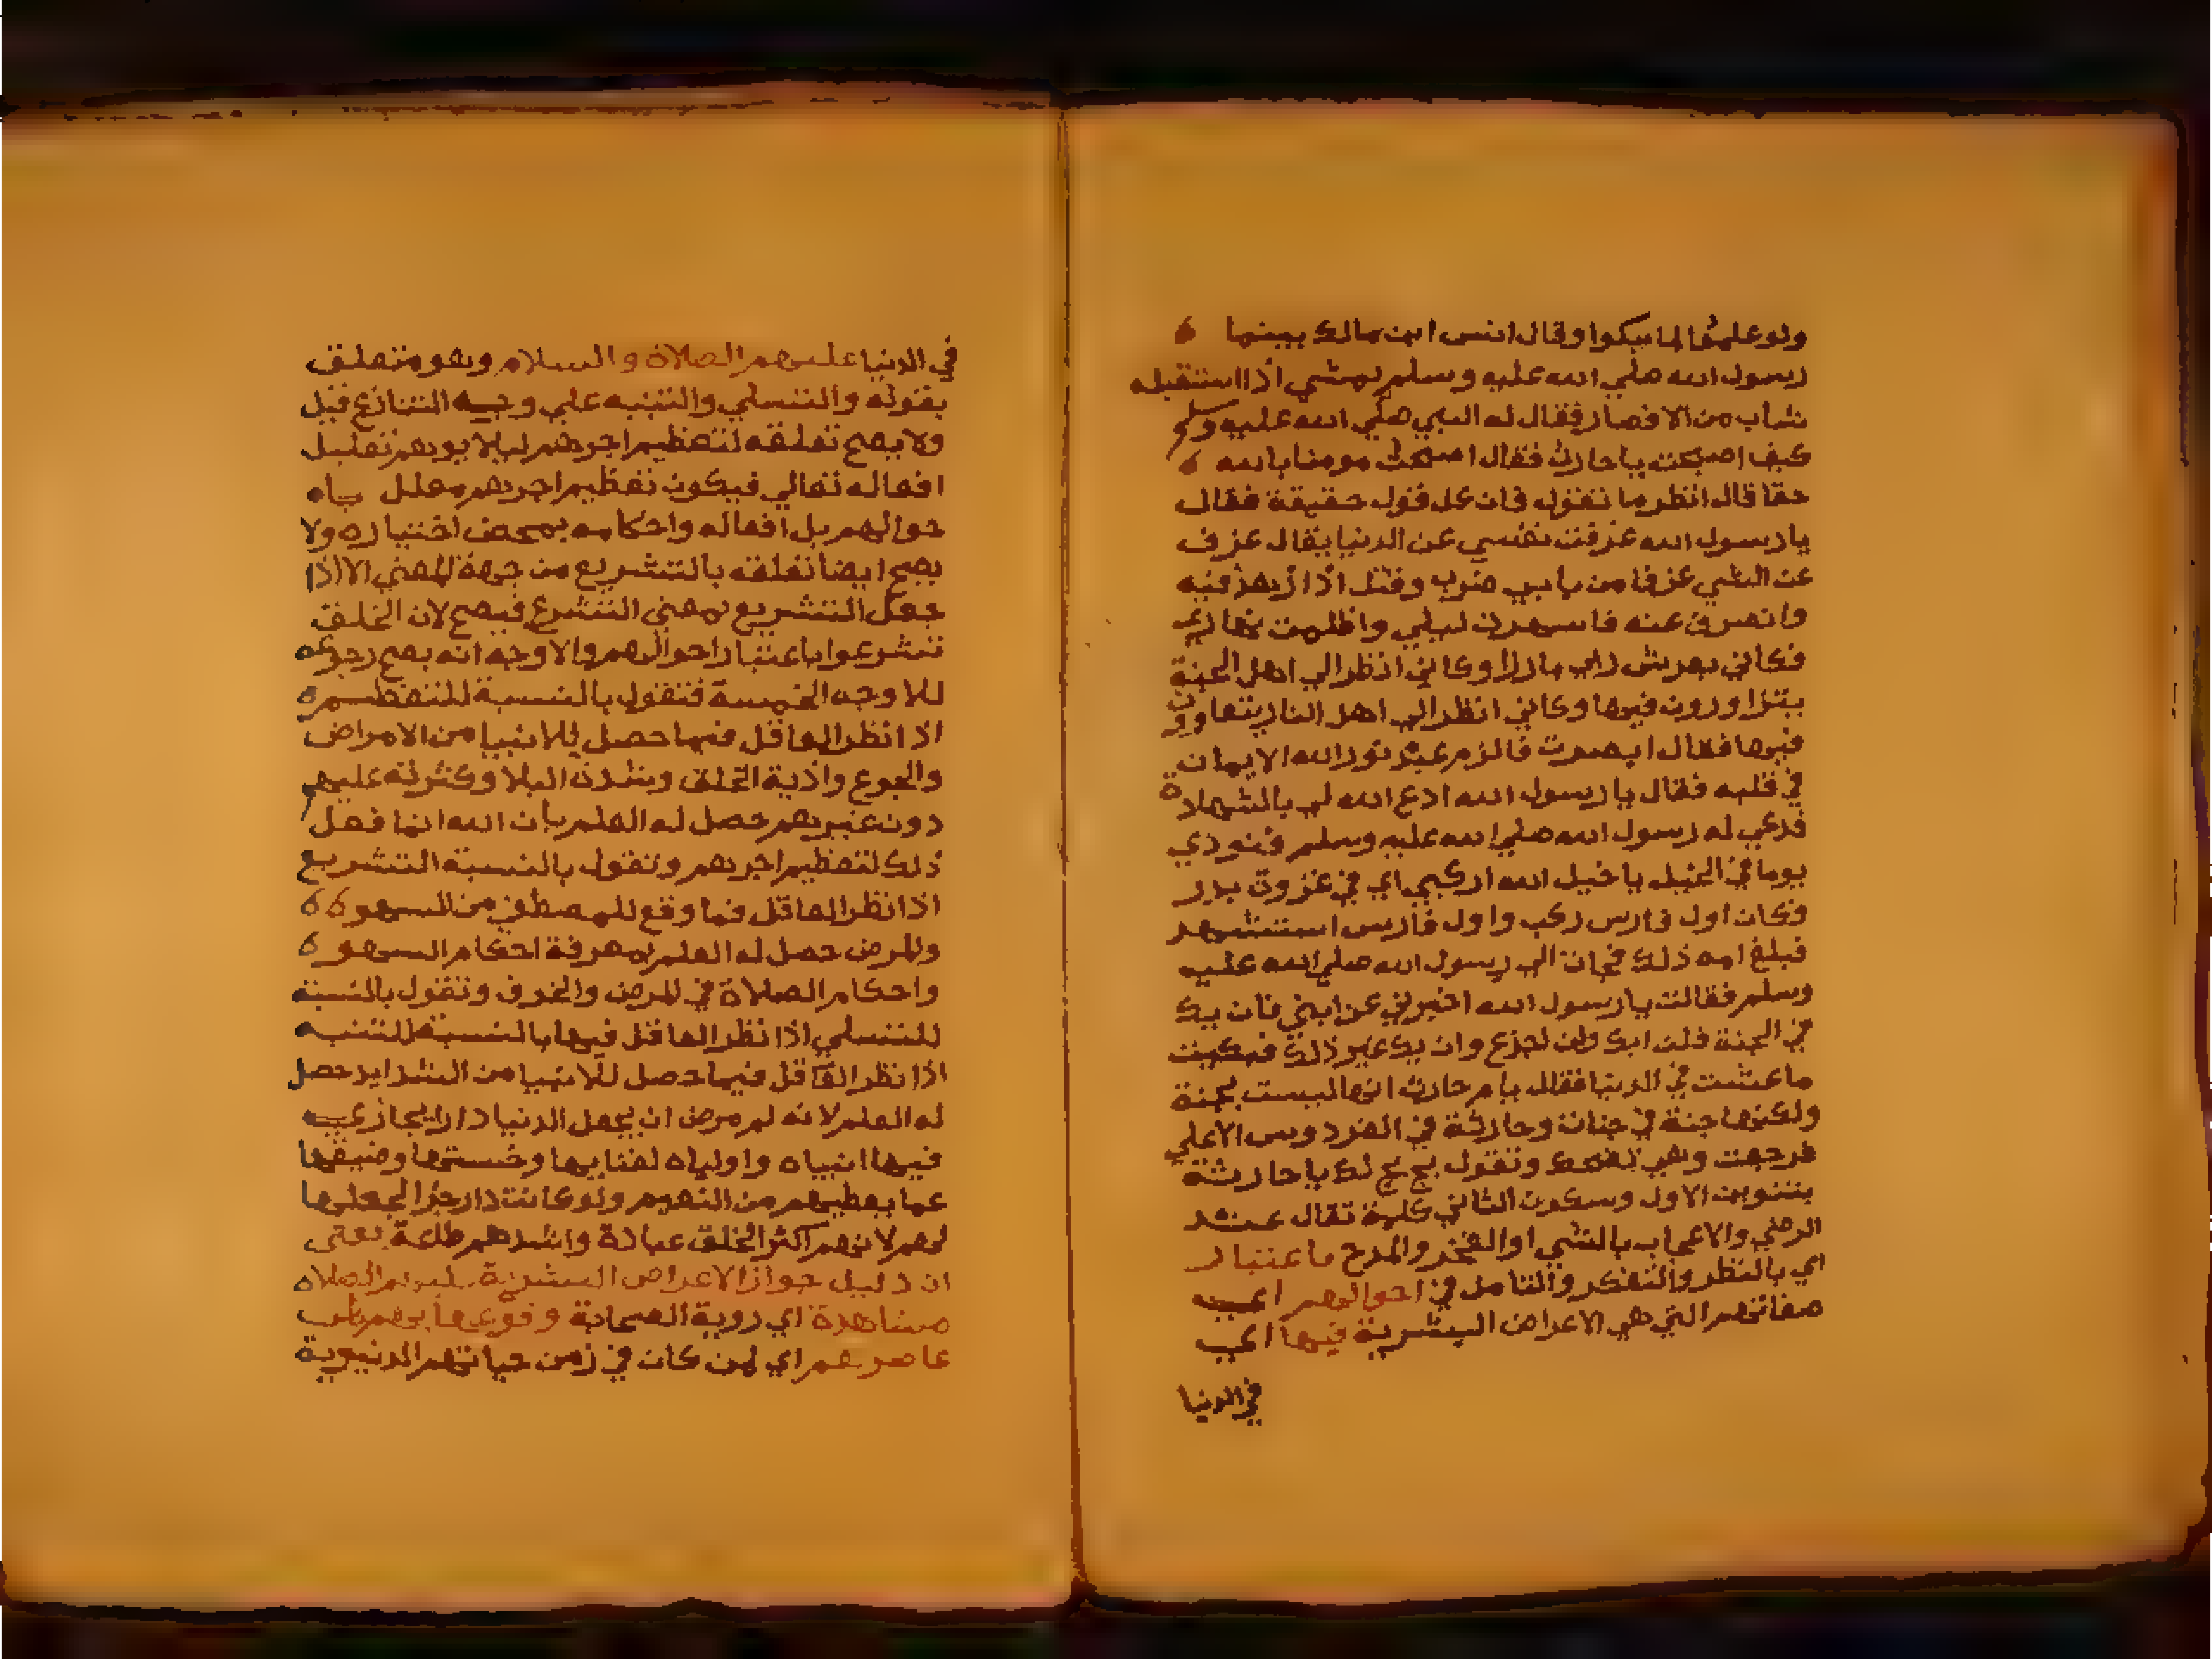 ولو علمتها لما نيكوا وقال انس ابن مالك بينما
رسول الله صلي الله عليه وسلم يمشي اذا استقبله
شاب من الانصار فقال له النبي صلي الله عليه وسلم
كيف اصبحت يا حارث فقال اصبحت مومنا بالله
حقا قال انظر ما تقول فان كل قول حقيقة فقال
يا رسول الله عزفت نفسي عن الدنيا يقال عزف
عن الشي عزفا من بابي ضرب وقتل اذا زهد فيه
وانصرف عنه فاسهرت ليلي واظلمت نهاري
فكاني بعرش ربي بارزا وكاني انظر الي اهل الجنة
يتزاورون فيها وكاني انظر الي اهل النار يتعاوون
فيها فقال ابصرت فالزم عبد نور الله الايمان
في قلبه فقال يا رسول الله ادع الله لي بالشهادة
فدعي له رسول الله صلي الله عليه وسلم فنودي
يوما في الخيل يا خيل الله اركبي اي في غزوة بدر
فكان اول فارس ركب واول فارس استشهد
فبلغ امه ذلك فجات الي رسول الله صلي الله عليه
وسلم فقالت يا رسول الله اخبرني عن ابني فان يك
في الجنة فلن ابك ولن اجزع وان يك غير ذلك فبكيت
ما عشت في الدنيا فقال يا ام حارث انها ليست بجنة
ولكنها جنة في جنان وحارثة في الفردوس الاعلي
فرجعت وهي تضحك وتقول بخ بخ لك يا حارثة
بتنوين الاول وسكون الثاني كلمة تقال عند
الرضي والاعجاب بالشي او الفخر والمدح باعتبار
اي بالنظر والتفكر والتامل في احوالهم اي
صفاتهم التي هي الاعراض البشرية فيها اي
في الدنيا
في الدنيا عليهم الصلاة والسلام وهو متعلق
بقوله والتسلي والتنبيه علي وجه التنازع قيل
ولا يصح تعلقه لتعظيم اجرهم ليلا يوهم تعليل
افعاله تعالي فيكون تعظيم اجرهم معلل باه
حوالهم بل افعاله واحكامه بمحض اختياره ولا
يصح ايضا تعلقه بالتشريع من جهة المعني الا اذا
جعل التشريع بمعني التشرع فيصح لان الخلق
تشرعوا باعتبار احوالهم والاوجه انه يصح رجوعه
للاوجه الخمسة فتقول بالنسبة للتعظيم
اذا نظر العاقل فيما حصل للانبيا من الامراض
والجوع واذية الخلق وشدة البلا وكثرته عليهم
دون غيرهم حصل له العلم بان الله انما فعل
ذلك لتعظيم اجرهم وتقول بالنسبة التشريع
اذا نظر العاقل فيما وقع للمصطفي من السهو
والمرض حصل له العلم بمعرفة احكام السهو
واحكام الصلاة في المرض والخوف وتقول بالنسبة
للتسلي اذا نظر العاقل فيها بالنسبة للتنبيه
اذا نظر العاقل فيما حصل للانبيا من الشدايد حصل
له العلم لانه لم يرض ان يجعل الدنيا دارا يجازي
فيها انبياه واولياه لفنايها وخستها وضيقها
عما يعطيهم من النعيم ولو كانت دار جزا لجعلها
لهم لانهم اكثر الخلق عبادة واشدهم طاعة يعني
ان دليل جواز الاعراض البشرية عليهم الصلاة
مشاهدة اي روية الصحابة وقوعها بهم لمن
عاصرهم اي لمن كان في زمن حياتهم الدنيوية